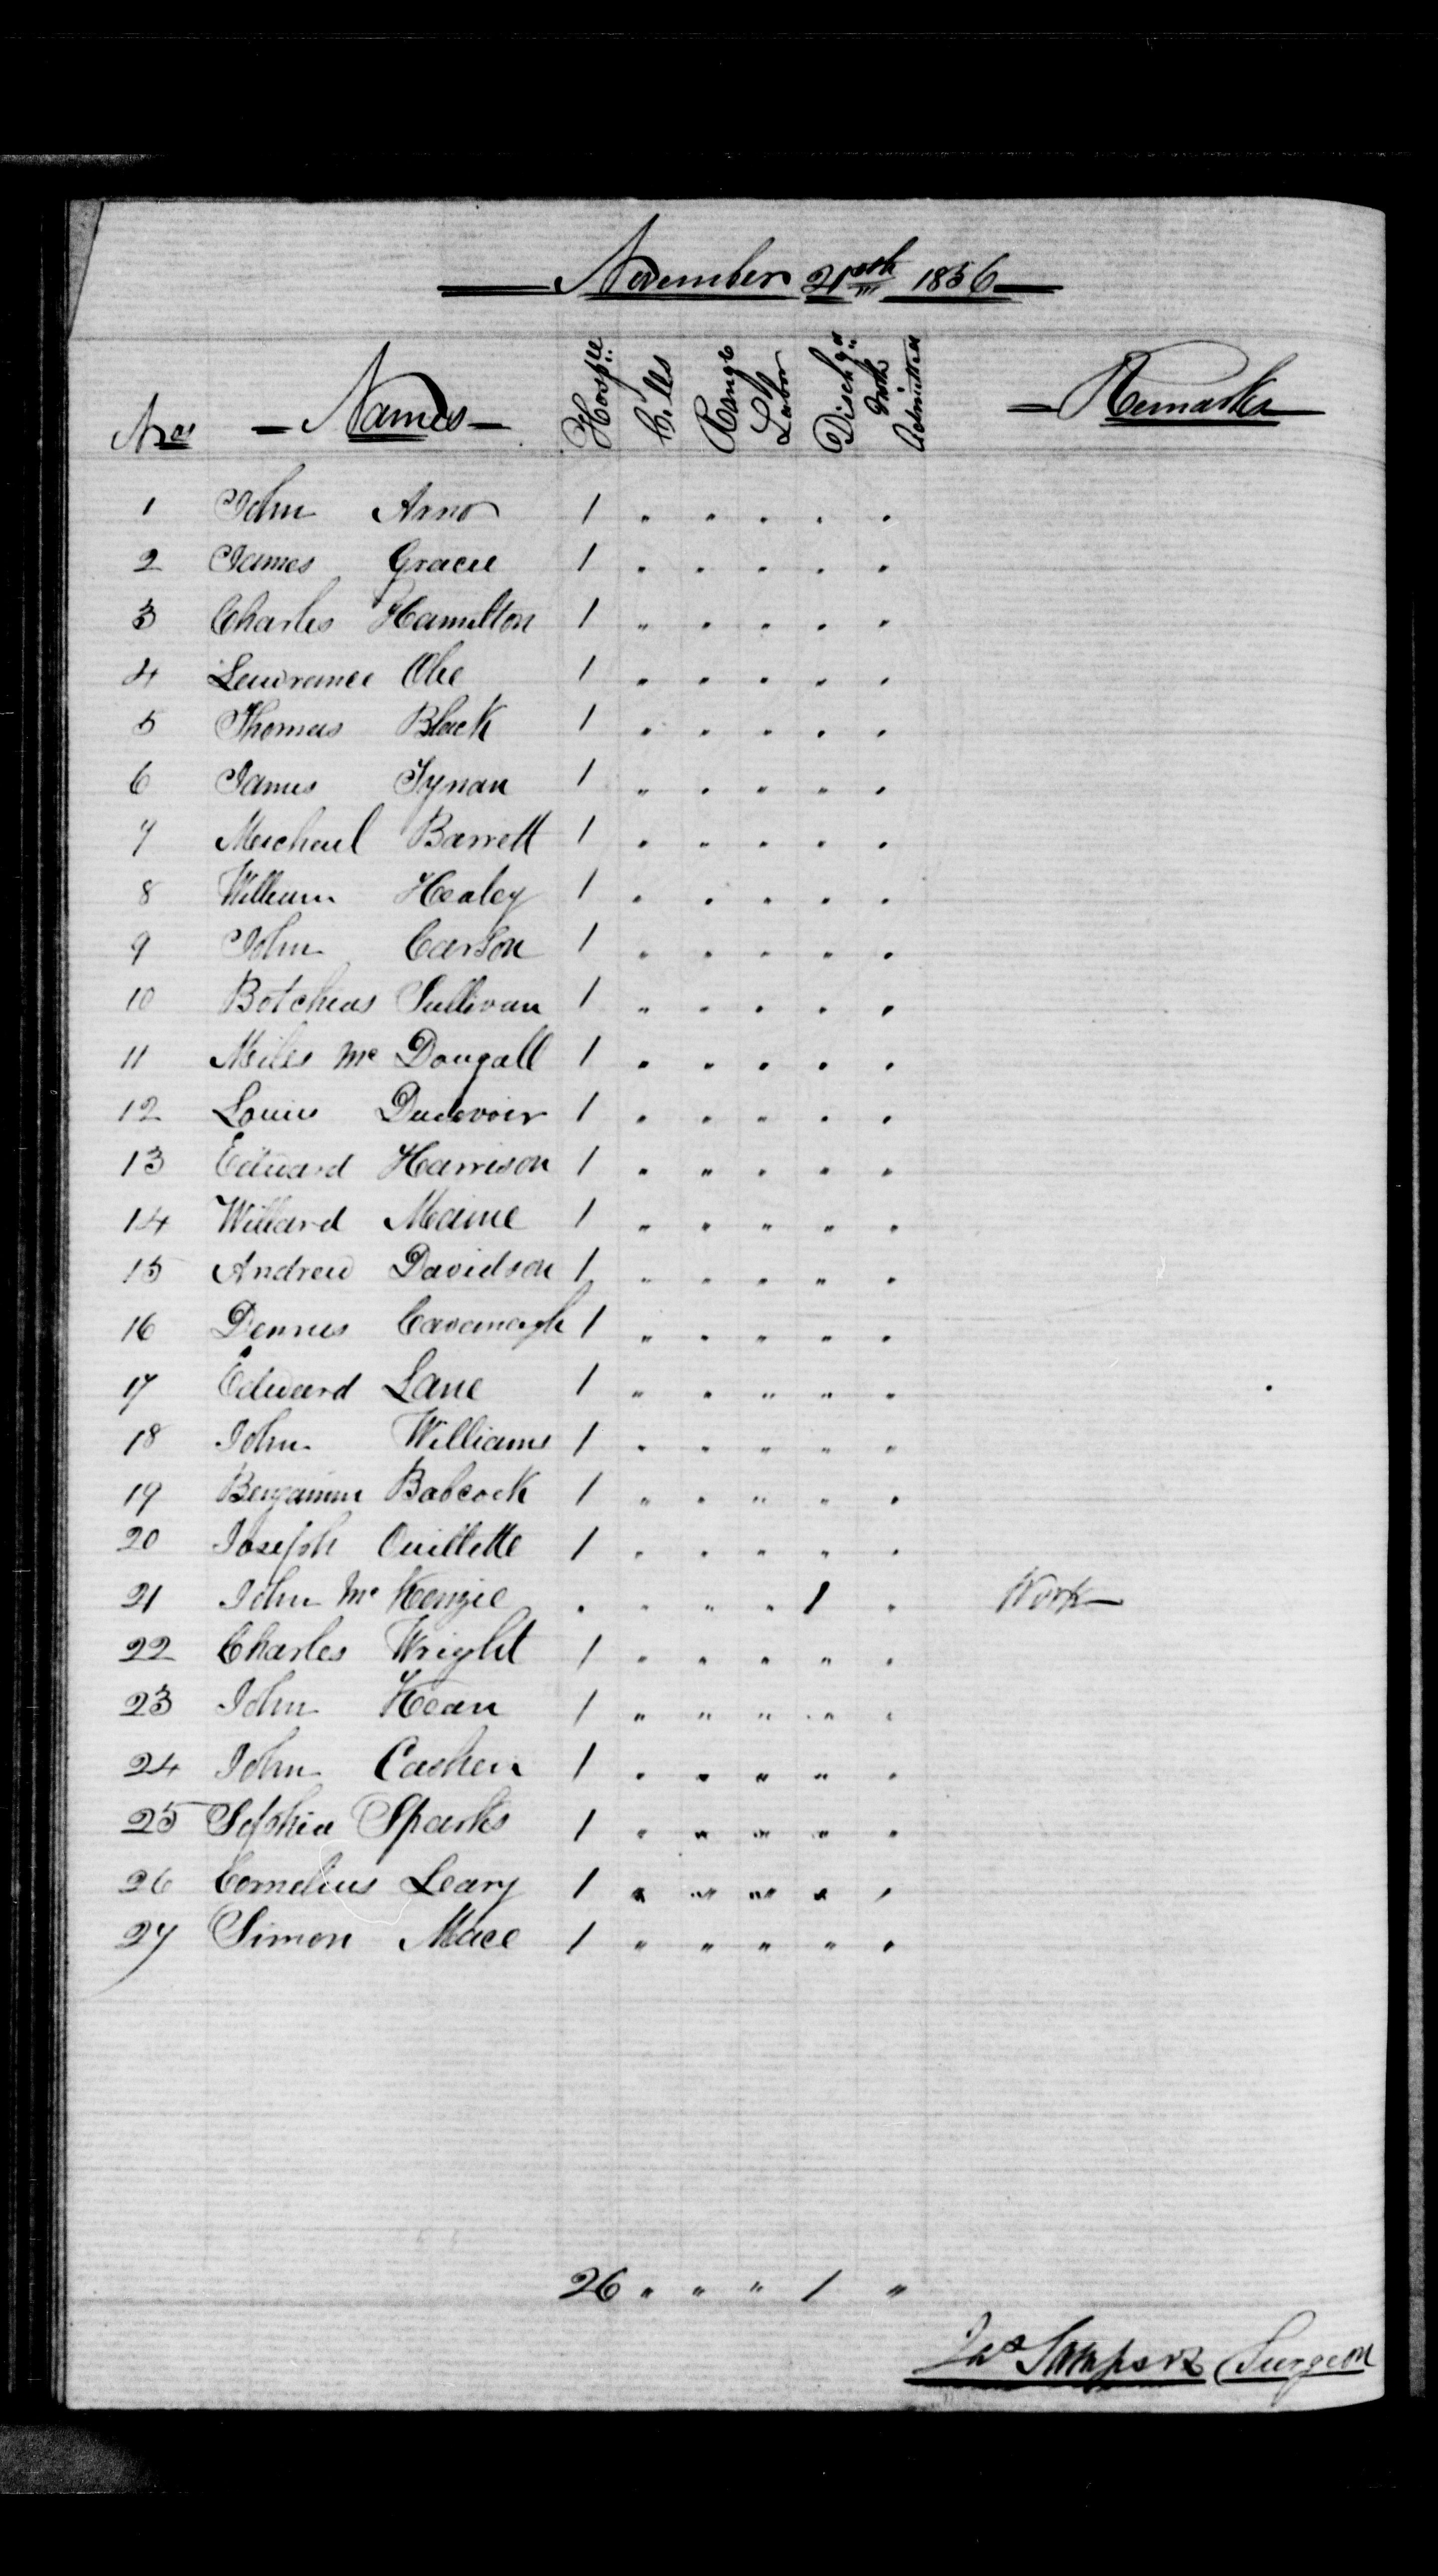 November 21st 1856
Nos Names Hospl Cells Range Lt Labor Dischgd Not Admitted Remarks
1 John Arno 1 " " " " "
2 James Gracie 1 " " " " "
3 Charles Hamilton 1 " " " " "
4 Lawrance Obe 1 " " " " "
5 Thomas Black 1 " " " " "
6 James Tynan 1 " " " " "
7 Micheal Barrett 1 " " " " "
8 William Healey 1 " " " " "
9 John Carson 1 " " " " "
10 Botcheas Sullivan 1 " " " " "
11 Miles Mc Dougall 1 " " " " "
12 Louis Dudevoir 1 " " " " "
13 Edward Harrison 1 " " " " "
14 Willard Maine 1 " " " " "
15 Andrew Davidson 1 " " " " "
16 Dennis Cavanagh 1 " " " " "
17 Edward Lane 1 " " " " "
18 John Williams 1 " " " " "
19 Benjamin Babcock 1 " " " " "
20 Joseph Ouillette 1 " " " " "
21 John Mc Kenzie " " " " 1 " Work
22 Charles Wright 1 " " " " "
23 John Kean 1 " " " " "
24 John Cashen 1 " " " " "
25 Sophia Sparks 1 " " " " "
26 Cornelius Leary 1 " " " " "
27 Simon Mace 1 " " " " "
26 " " " 1 "
Jas Sampson Surgeon